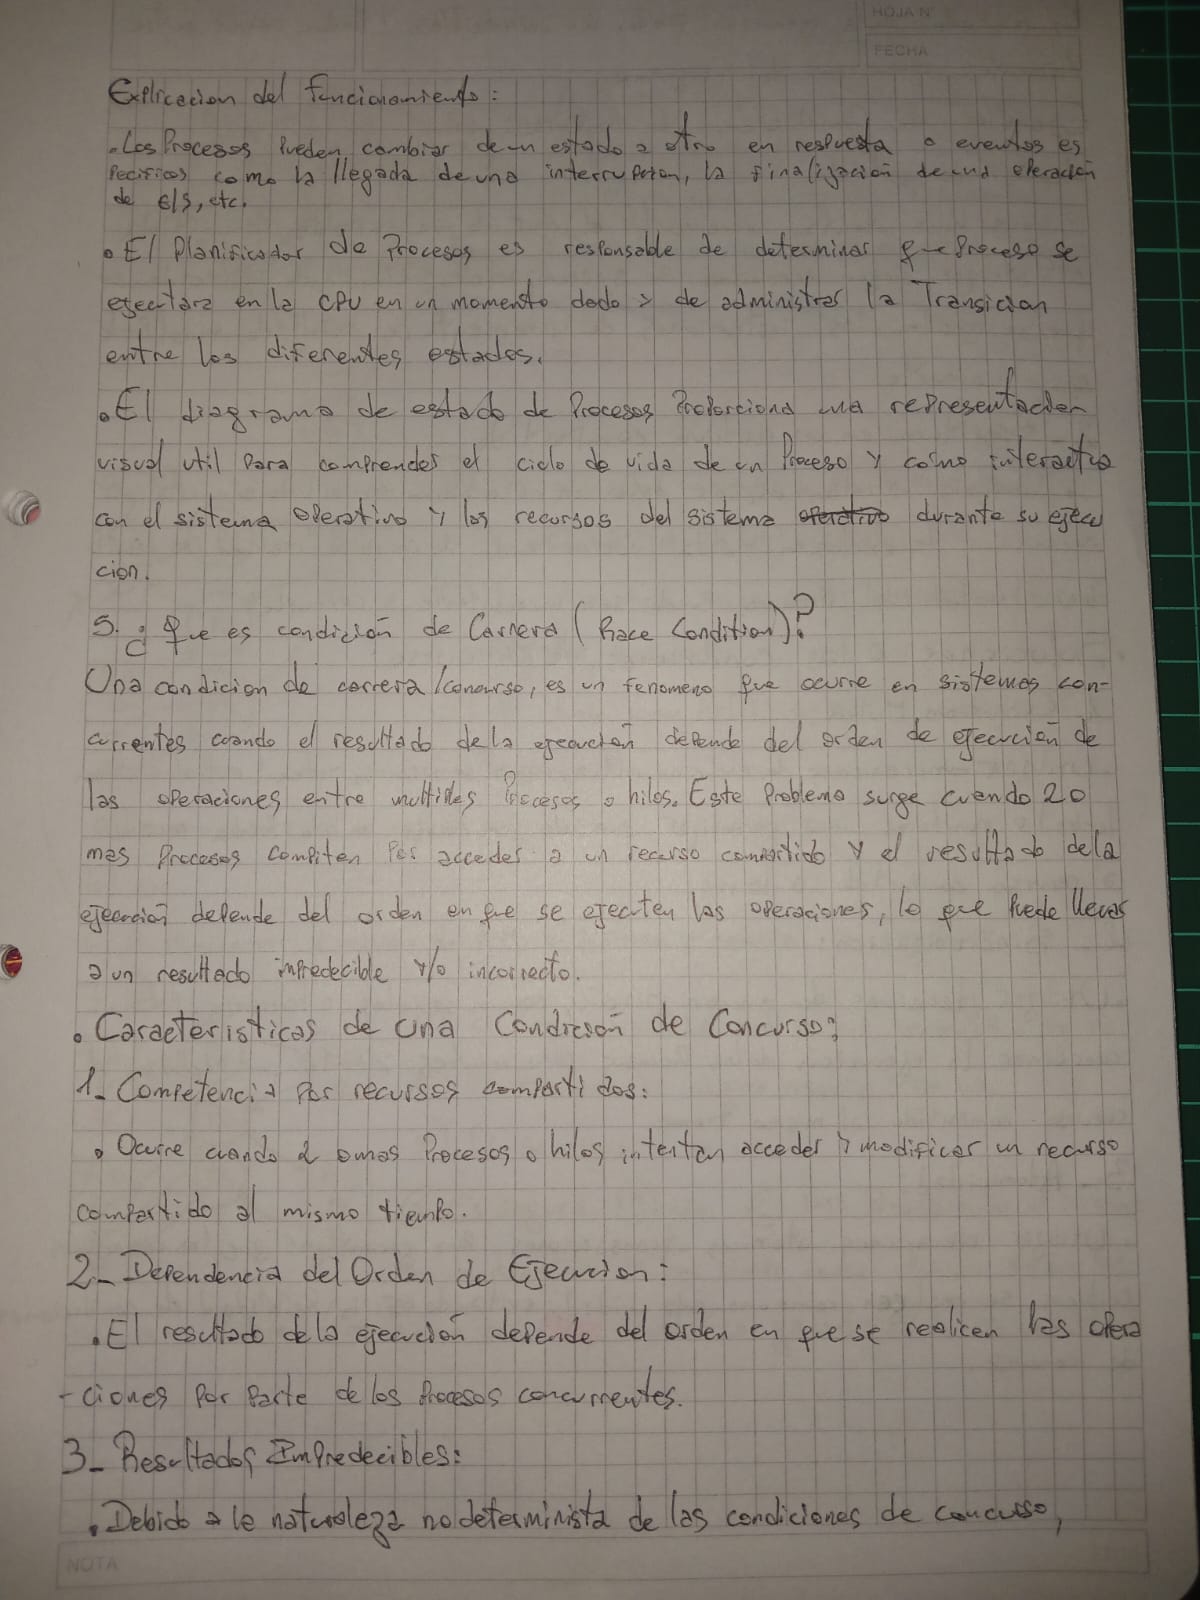 HOJA N°
FECHA
Explicacion del funcionamiento:
• Los Procesos Pueden cambiar de un estado a otro en respuesta a eventos es
pecificos como la llegada de una interrupcion, la finalización de una operación
de E/S, etc.
• El Planificador de Procesos es responsable de determinar que Proceso se
ejecutara en la CPU en un momento dado y de administrar la Transicion
entre los diferentes estados.
• El diagrama de estado de Procesos Proporciona una representacion
visual util Para comprender el ciclo de vida de un Proceso y como interactua
con el sistema operativo y los recursos del sistema operativo durante su ejecu
cion.
5. ¿Que es condición de Carrera (Race Condition)?
Una condicion de carrera/concurso, es un fenomeno que ocurre en sistemas con-
currentes cuando el resultado de la ejecución depende del orden de ejecución de
las operaciones entre multiples Procesos o hilos. Este Problema surge cuando 2 o
mas Procesos compiten Por acceder a un recurso compartido y el resultado de la
ejecución depende del orden en que se ejecuten las operaciones, lo que Puede llevar
a un resultado impredecible y/o incorrecto.
• Caracteristicas de una Condición de Concurso:
1- Competencia Por recursos compartidos:
• Ocurre cuando 2 o mas Procesos o hilos intentan acceder y modificar un recurso
compartido al mismo tiempo.
2- Dependencia del Orden de Ejecucion:
• El resultado de la ejecución depende del orden en que se realicen las opera
-ciones Por Parte de los Procesos concurrentes.
3- Resultados Impredecibles:
• Debido a la naturaleza no determinista de las condiciones de concurso,
NOTA